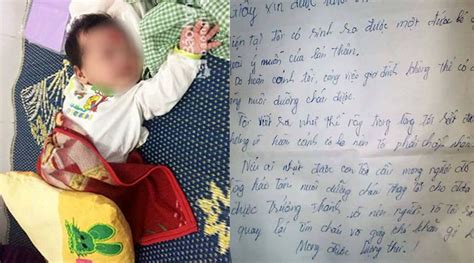 Giấy xin được
tại tôi có sinh ra được một đứa bé
ý muốn của bản thân.
hoàn cảnh tôi, công việc gia đình không thể có đ
nuôi dưỡng cháu được.
Tôi viết ra như thế này trong lòng tôi rất
vì hoàn cảnh nên tôi phải chấp nhận
Nếu ai nhặt được con tôi cầu mong người đó
hảo tâm nuôi dưỡng cháu thay tôi cho
được trưởng thành nên người, và tôi
quay lại tìm cháu khó khăn gì
Mong được lượng thứ!